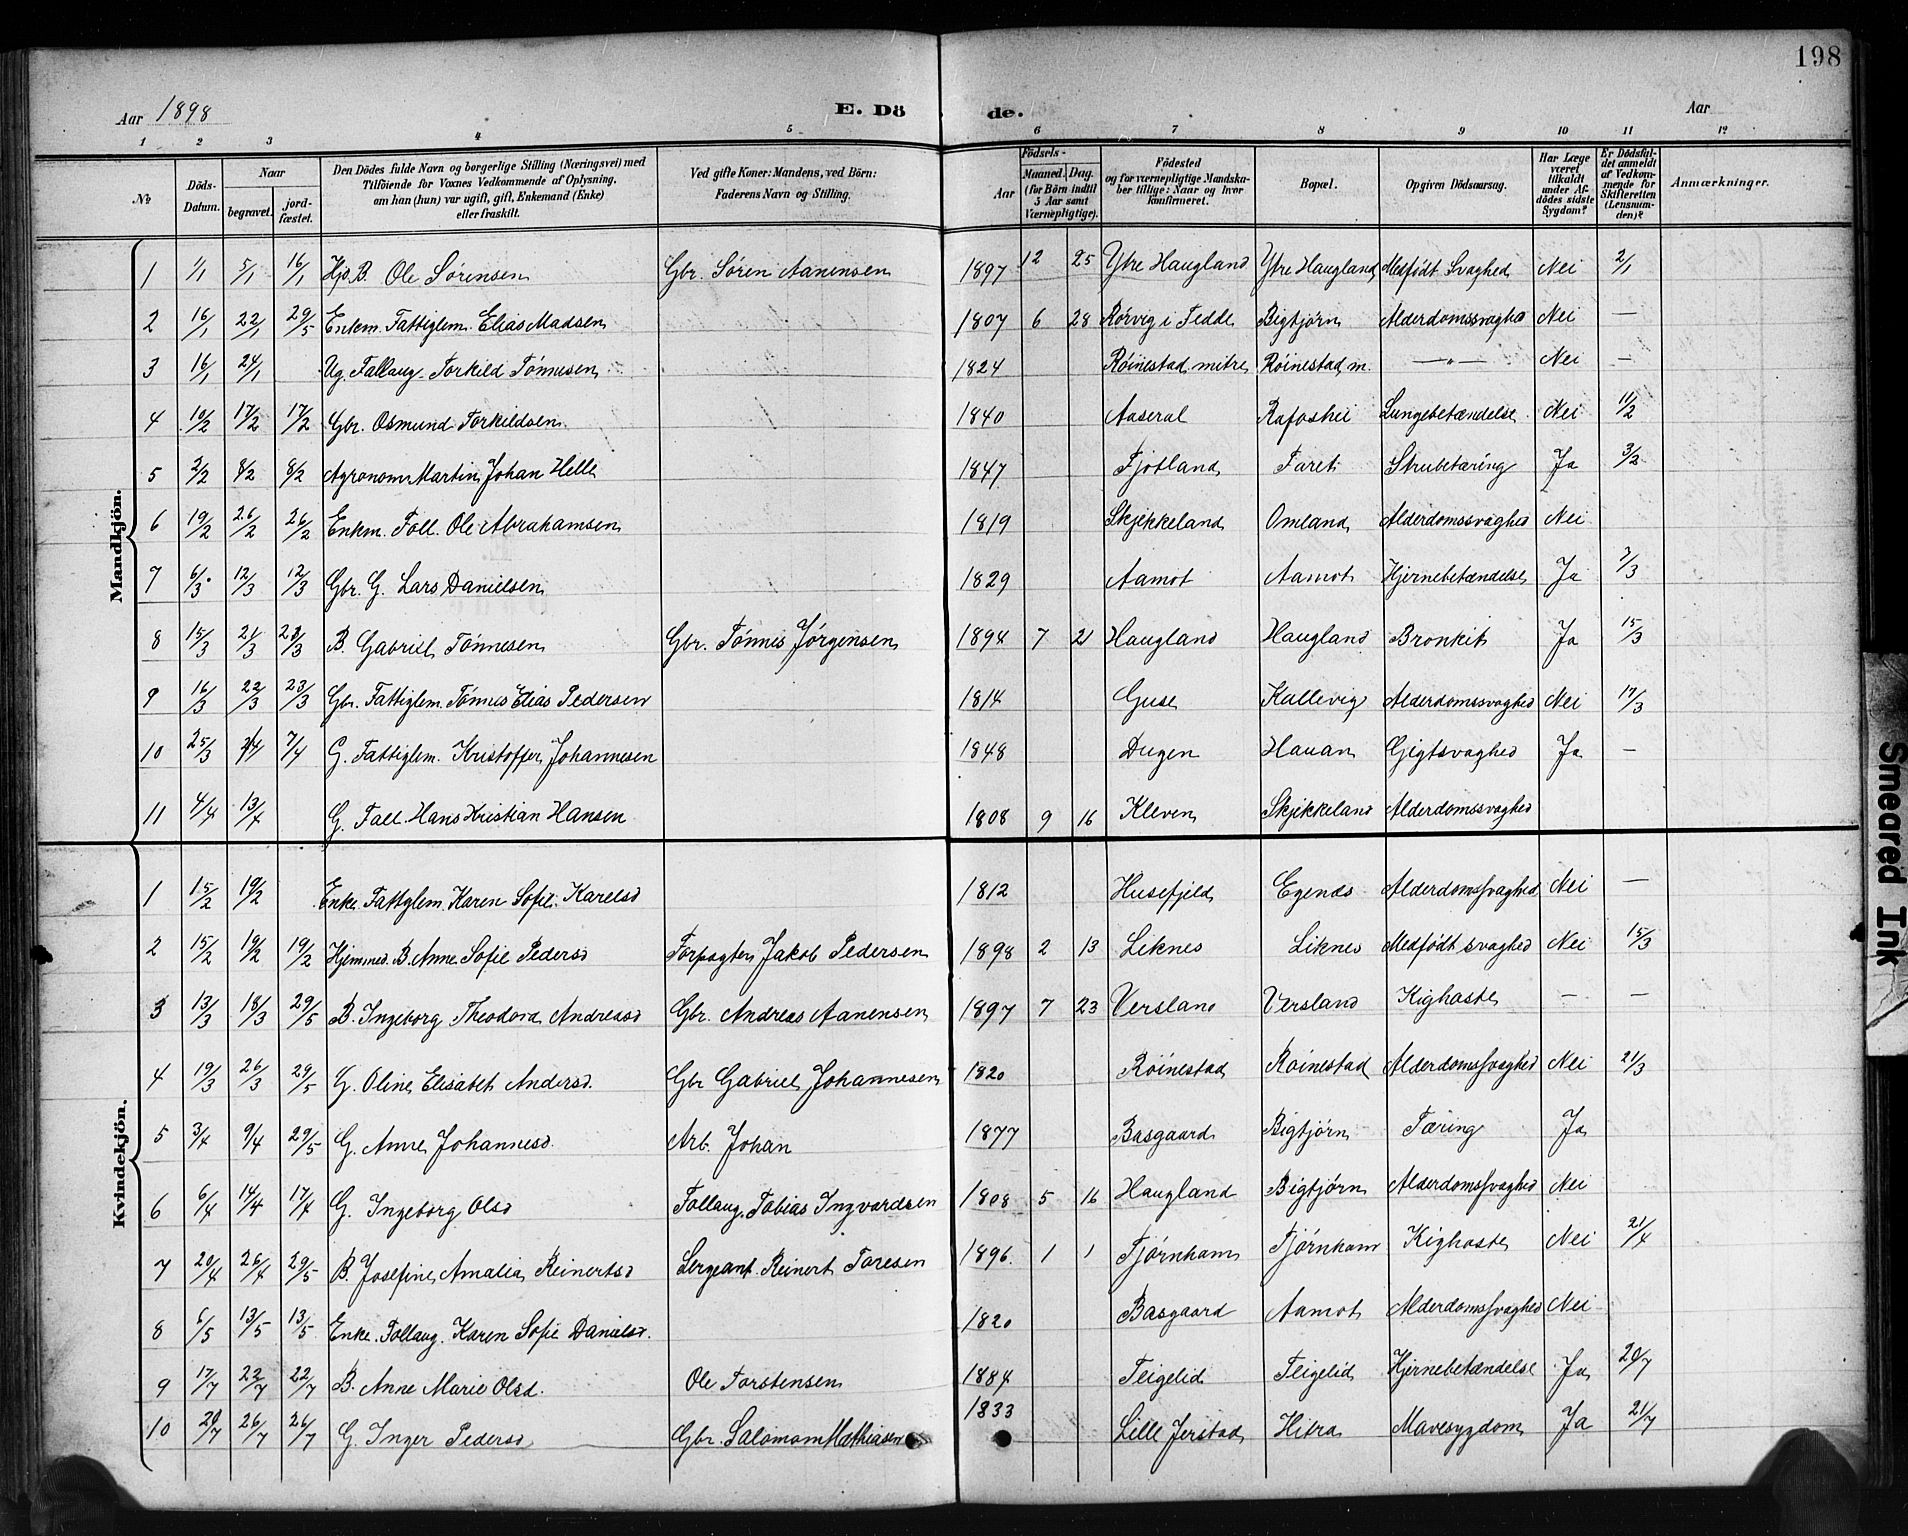 198
Aar 1898 E. Dö de. Aar
1 2 3 4 5 6 7 8 9 10 11 12
No
Döds-Datum.
Naar
begravet.
jord-fæstet.
Den Dödes fulde Navn og borgerlige Stilling (Næringsvei) med
Tilföiende for Voxnes Vedkommende af Oplysning,
om han (hun) var ugift, gift, Enkemand (Enke)
eller fraskilt.
Ved gifte Koner: Mandens, ved Börn:
Faderens Navn og Stilling.
Födsels-
Aar
Maaned. Dag.
(for Börn indtil
5 Aar samt
Værnepligtige).
Födested
og for værnepligtige Mandska-
ber tillige: Naar og hvor
konfirmeret.
Bopæl.
Opgiven Dödsaarsag.
Har Læge
været
tilkaldt
under Af-
dödes sidste
Sygdom?
Er Dödsfal-
det anmeldt
af Vedkom-
mende for
Skifteretten
(Lensman-
den)?
Anmærkninger.
Mandkjön.
1 1/1 5/1 16/1 Hjd. B. Ole Sørensen Gbr. Søren Aanensen 1897 12 25 Ytre Haugland Ytre Haugland Medfödt Svaghed Nei 2/1
2 16/1 22/1 29/5 Enkm. Fattiglem. Elias Madsen 1807 6 28 Rörvig i Fedde Bigtjörn Alderdomssvaghed Nei —
3 16/1 24/1 Ug. Fallaug. Torkild Tönnesen 1824 Röinestad mitre Röinestad m. —„— Nei —
4 10/2 17/2 17/2 Gbr. Osmund Torkildsen 1840 Aaseral Rafoshei Lungebetændelse Nei 11/2
5 2/2 8/2 8/2 Agronom Martin Johan Helle 1847 Fjotland Faret Strubetæring Ja 3/2
6 19/2 26/2 26/2 Enkm. Foll. Ole Abrahamsen 1819 Skjekkeland Omland Alderdomssvaghed Nei
7 6/3 12/3 12/3 Gbr. G. Lars Danielsen 1829 Aamot Aamot Hjernebetændelse Ja 7/3
8 15/3 21/3 23/3 B. Gabriel Tönnesen Gbr. Tönnes Jörgensen 1894 7 21 Haugland Haugland Bronkit Ja 15/3
9 16/3 22/3 23/3 Gbr. Fattiglem. Tönnes Elias Pedersen 1814 Guse Kallevig Alderdomssvaghed Nei 17/3
10 25/3 7/4 G. Fattiglem. Kristoffer Johannesen 1848 Dugen Hauan Gigtsvaghed Ja —
11 4/4 13/4 G. Fall. Hans Kristian Hansen 1808 9 16 Kleven Skjekkeland Alderdomssvaghed
Kvindekjön.
1 15/2 19/2 Enke Fattglem. Karen Sofie Karelsd 1812 Husefjeld Egenes Alderdomssvaghed Nei —
2 15/2 19/2 19/2 Hjemmed. B. Anne Sofie Pedersd Forpagter Jakob Pedersen 1898 2 13 Liknes Liknes Medfödt svaghed Nei 15/3
3 13/3 18/3 29/5 B. Ingeborg Theodora Andreasd Gbr. Andreas Aanensen 1897 7 23 Versland Versland Kighoste — —
4 19/3 26/3 29/5 G. Oline Elisabet Andersd. Gbr Gabriel Johannesen 1820 Röinestad Röinestad Alderdomssvaghed Nei 21/3
5 3/4 9/4 29/5 G. Anne Johannesd. Arb. Johan 1877 Basgaard Bigtjörn Tæring Ja
6 6/4 14/4 17/4 G. Ingeborg Olsd Follaug. Tobias Ingvardsen 1808 5 16 Haugland Bigtjörn Alderdomssvaghed Nei
7 20/4 26/4 29/5 B. Josefine Amalia Reinertsd Sergeant Reinert Taresen 1896. 1 1 Tjörnhom Tjörnhom Kighoste Nei 21/4
8 6/5 13/5 13/5 Enke. Follaug. Karen Sofie Danielsd. 1820 Basgaard Aamot Alderdomssvaghed Nei
9 17/7 22/7 22/7 B. Anne Marie Olsd. Ole Torstensen 1884 Fligelid Fligelid Hjernebetændelse Ja 20/7
10 20/7 26/7 26/7 G. Inger Pedersd Gbr. Salomom Mathiasen 1833 Lille Jerstad Hitra Mavesygdom Ja 21/7
Smeared Ink